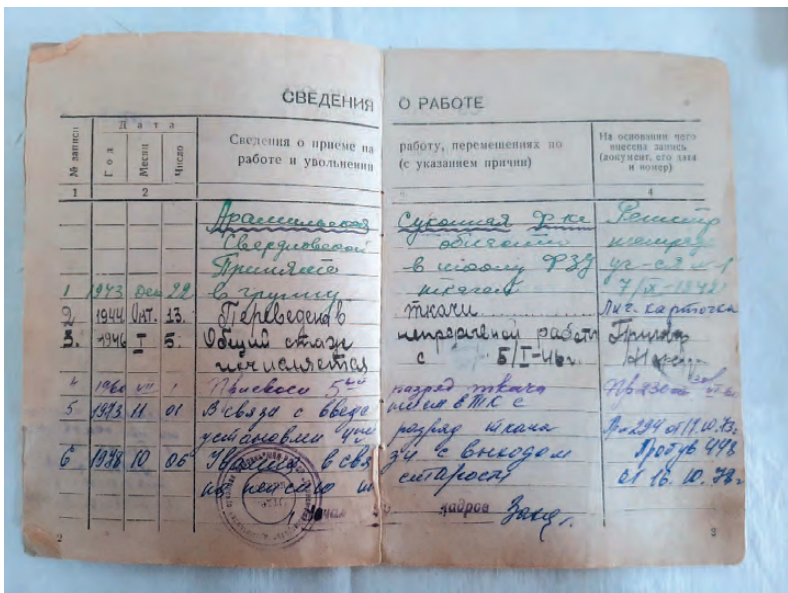 СВЕДЕНИЯ О РАБОТЕ
№ записи
Дата
Год
Месяц
Число
Сведения о приеме на работу, перемещениях по
работе и увольнении (с указанием причин)
На основании чего
внесена запись
(документ, его дата
и номер)
1 2 3 4
Арамильская Суконная Ф-ка
Свердловской области
Принята в школу ФЗУ
1 1943 22 в группу ткачей
2 1944 Окт. 13. Переведена в ткачи Лич. карточка
3. 1946 I 5. Общий стаж непрерывной работы
исчисляется с 5/I-46г.
4 VII 1 Присвоен 5ый разряд ткача
5 1973 11 01 В связи с введением в ТК с
установлен 4ый разряд ткача Пр 294 от 17.10.73г
6 1978 10 06 Уволена в связи с выходом Пр 448
на пенсию по старости от 16.10.78г
кадров
2 3